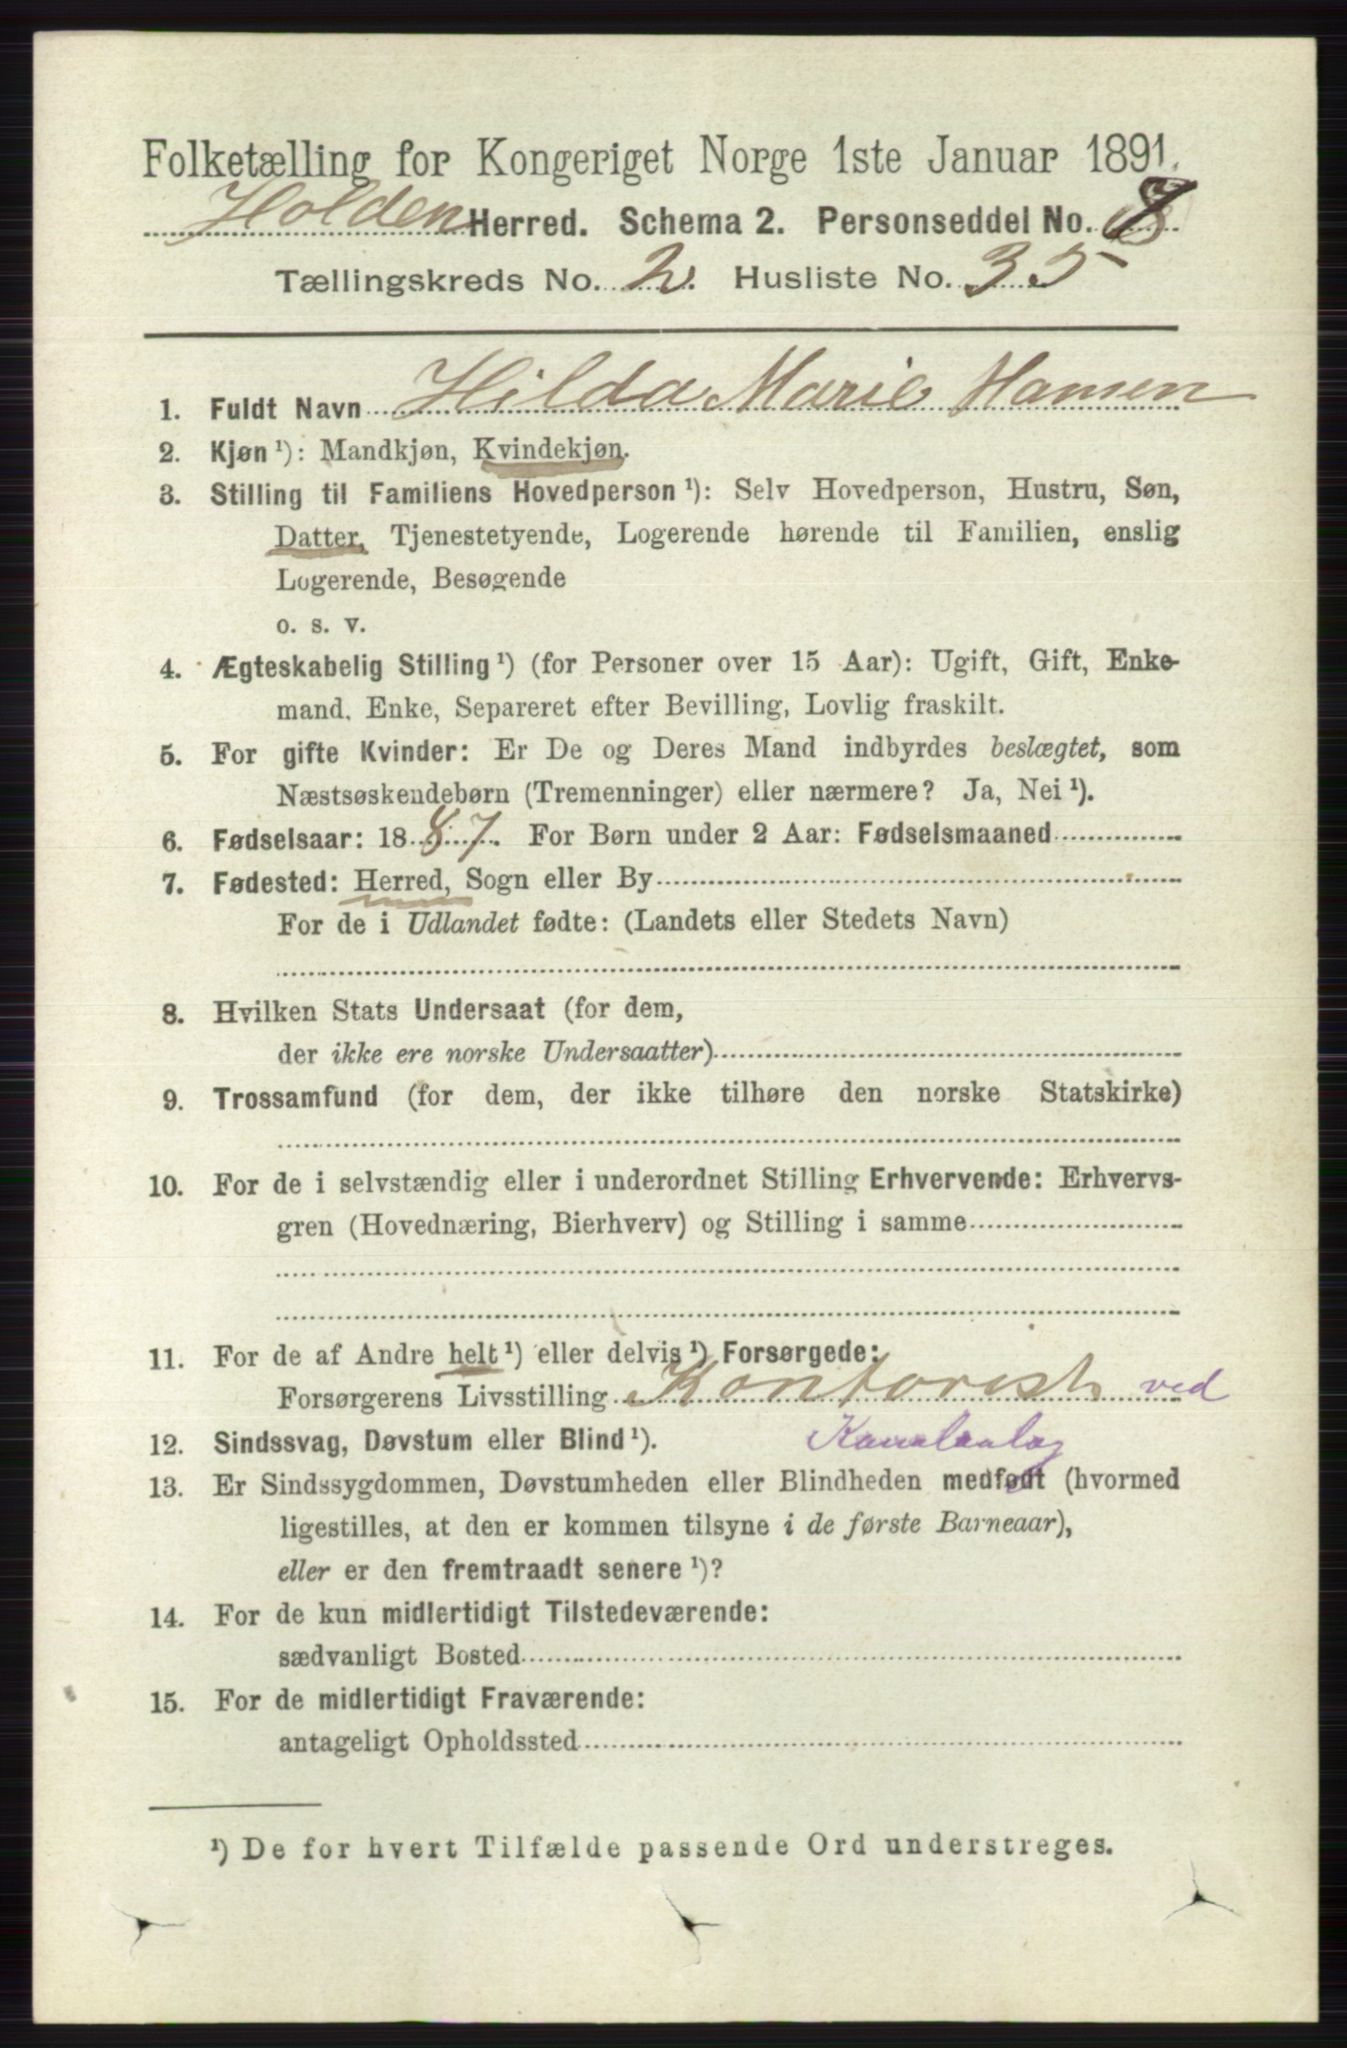 Folketælling for Kongeriget Norge 1ste Januar 1891.
Holden Herred. Schema 2. Personseddel No. 8
Tællingskreds No. 2. Husliste No. 35
1. Fuldt Navn Hilda Marie Hansen
2. Kjøn ¹): Mandkjøn, Kvindekjøn.
3. Stilling til Familiens Hovedperson ¹): Selv Hovedperson, Hustru, Søn,
Datter, Tjenestetyende, Logerende hørende til Familien, enslig
Logerende, Besøgende
o. s. v.
4. Ægteskabelig Stilling ¹) (for Personer over 15 Aar): Ugift, Gift, Enke-
mand, Enke, Separeret efter Bevilling, Lovlig fraskilt.
5. For gifte Kvinder: Er De og Deres Mand indbyrdes beslægtet, som
Næstsøskendebørn (Tremenninger) eller nærmere? Ja, Nei ¹).
6. Fødselsaar: 1887. For Børn under 2 Aar: Fødselsmaaned
7. Fødested: Herred, Sogn eller By
For de i Udlandet fødte: (Landets eller Stedets Navn)
8. Hvilken Stats Undersaat (for dem,
der ikke ere norske Undersaatter)
9. Trossamfund (for dem, der ikke tilhøre den norske Statskirke)
10. For de i selvstændig eller i underordnet Stilling Erhvervende: Erhvervs-
gren (Hovednæring, Bierhverv) og Stilling i samme
11. For de af Andre helt ¹) eller delvis ¹) Forsørgede:
Forsørgerens Livsstilling Kontorist ved
12. Sindssvag, Døvstum eller Blind ¹). Kanalanlæg
13. Er Sindssygdommen, Døvstumheden eller Blindheden medfødt (hvormed
ligestilles, at den er kommen tilsyne i de første Barneaar),
eller er den fremtraadt senere ¹)?
14. For de kun midlertidigt Tilstedeværende:
sædvanligt Bosted
15. For de midlertidigt Fraværende:
antageligt Opholdssted
¹) De for hvert Tilfælde passende Ord understreges.